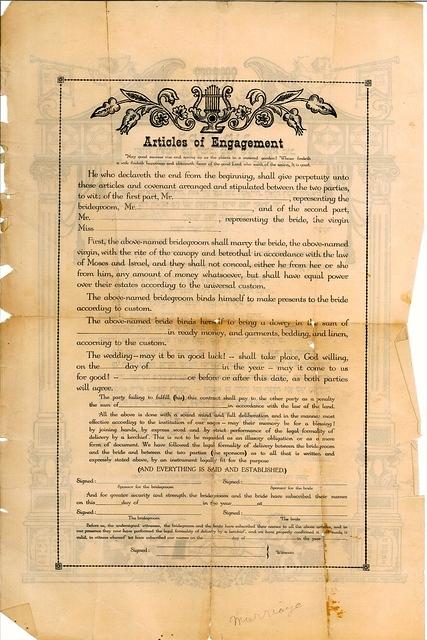 Articles of Engagement
He who declareth the end from the beginning, shall give perpetuity unto
these articles and covenant arranged and stipulated between the two parties,
to wit; of the first part, Mr. , representing the
bridegroom, Mr. , and of the second part,
Mr. , representing the bride, the virgin
Miss
First, the above-named bridegroom shall marry the bride, the above-named
virgin, with the rite of the canopy and betrothal in accordance with the law
of Moses and Israel, and they shall not conceal, either he from her or she
from him, any amount of money whatsoever, but shall have equal power
over their estates according to the universal custom.
The above-named bridegroom binds himself to make presents to the bride
according to custom.
The above-named bride binds herself to bring a dowry in the sum of
in ready money, and garments, bedding, and linen,
according to the custom.
The wedding—may it be in good luck! — shall take place, God willing,
on the day of in the year — may it come to us
for good! — or before or after this date, as both parties
will agree.
The party failing to fulfill (his) this contract shall pay to the other party as a penalty
the sum of in accordance with the law of the land.
All the above is done with a sound mind and full deliberation and in the manner most
effective according to the institution of our sages — may their memory be for a blessing!
by joining hands, by express word and by strict performance of the legal formality of
delivery by a kerchief. This is not to be regarded as an illusory obligation or as a mere
form of document. We have followed the legal formality of delivery between the bridegroom
and the bride and between the two parties (the sponsors) as to all that is written and
expressly stated above, by an instrument legally fit for the purpose
(AND EVERYTHING IS SAID AND ESTABLISHED)
Signed: Signed:
Sponsor for the bridegroom Sponsor for the bride
And for greater security and strength the bridegroom and the bride have subscribed their names
on this day of in the year
Signed: Signed:
The bridegroom The bride
Before us, the undersigned witnesses, the bridegroom and the bride have subscribed their names to all the above
Signed: Witnesses
Marriage